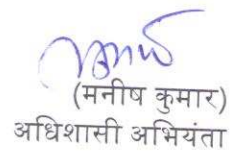 (मनीष कुमार)
अधिशासी अभियंता